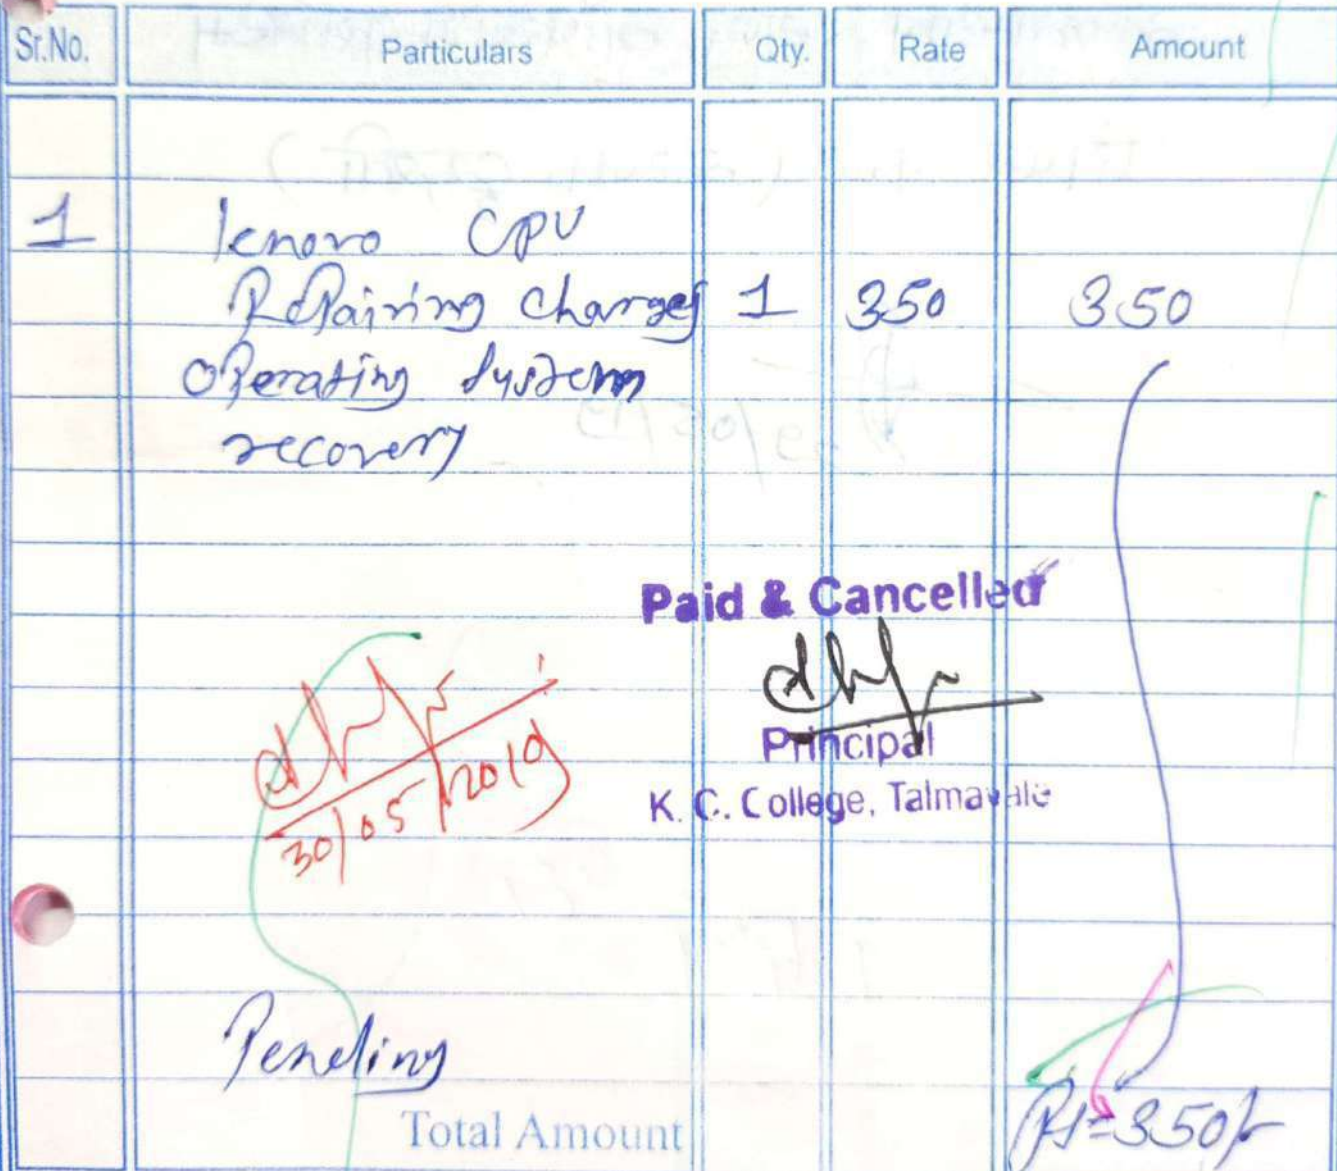 Sr.No. Particulars Qty. Rate Amount
1 lenovo CPU
Repairing charges 1 350 350
operating system
recovery
Paid & Cancelled
Principal
K. C. College, Talmavale
30/05/2019
Pending
Total Amount Rs=350/-